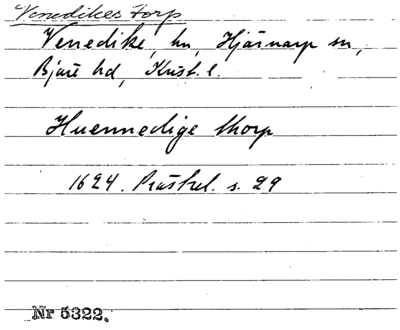 Venedikes torp
Venedike, hn, Hjärnarp sn,
Bjäre hd, Krist. l.
Huennedige thorp
1624. Prästrel. s. 29
Nr 5322.